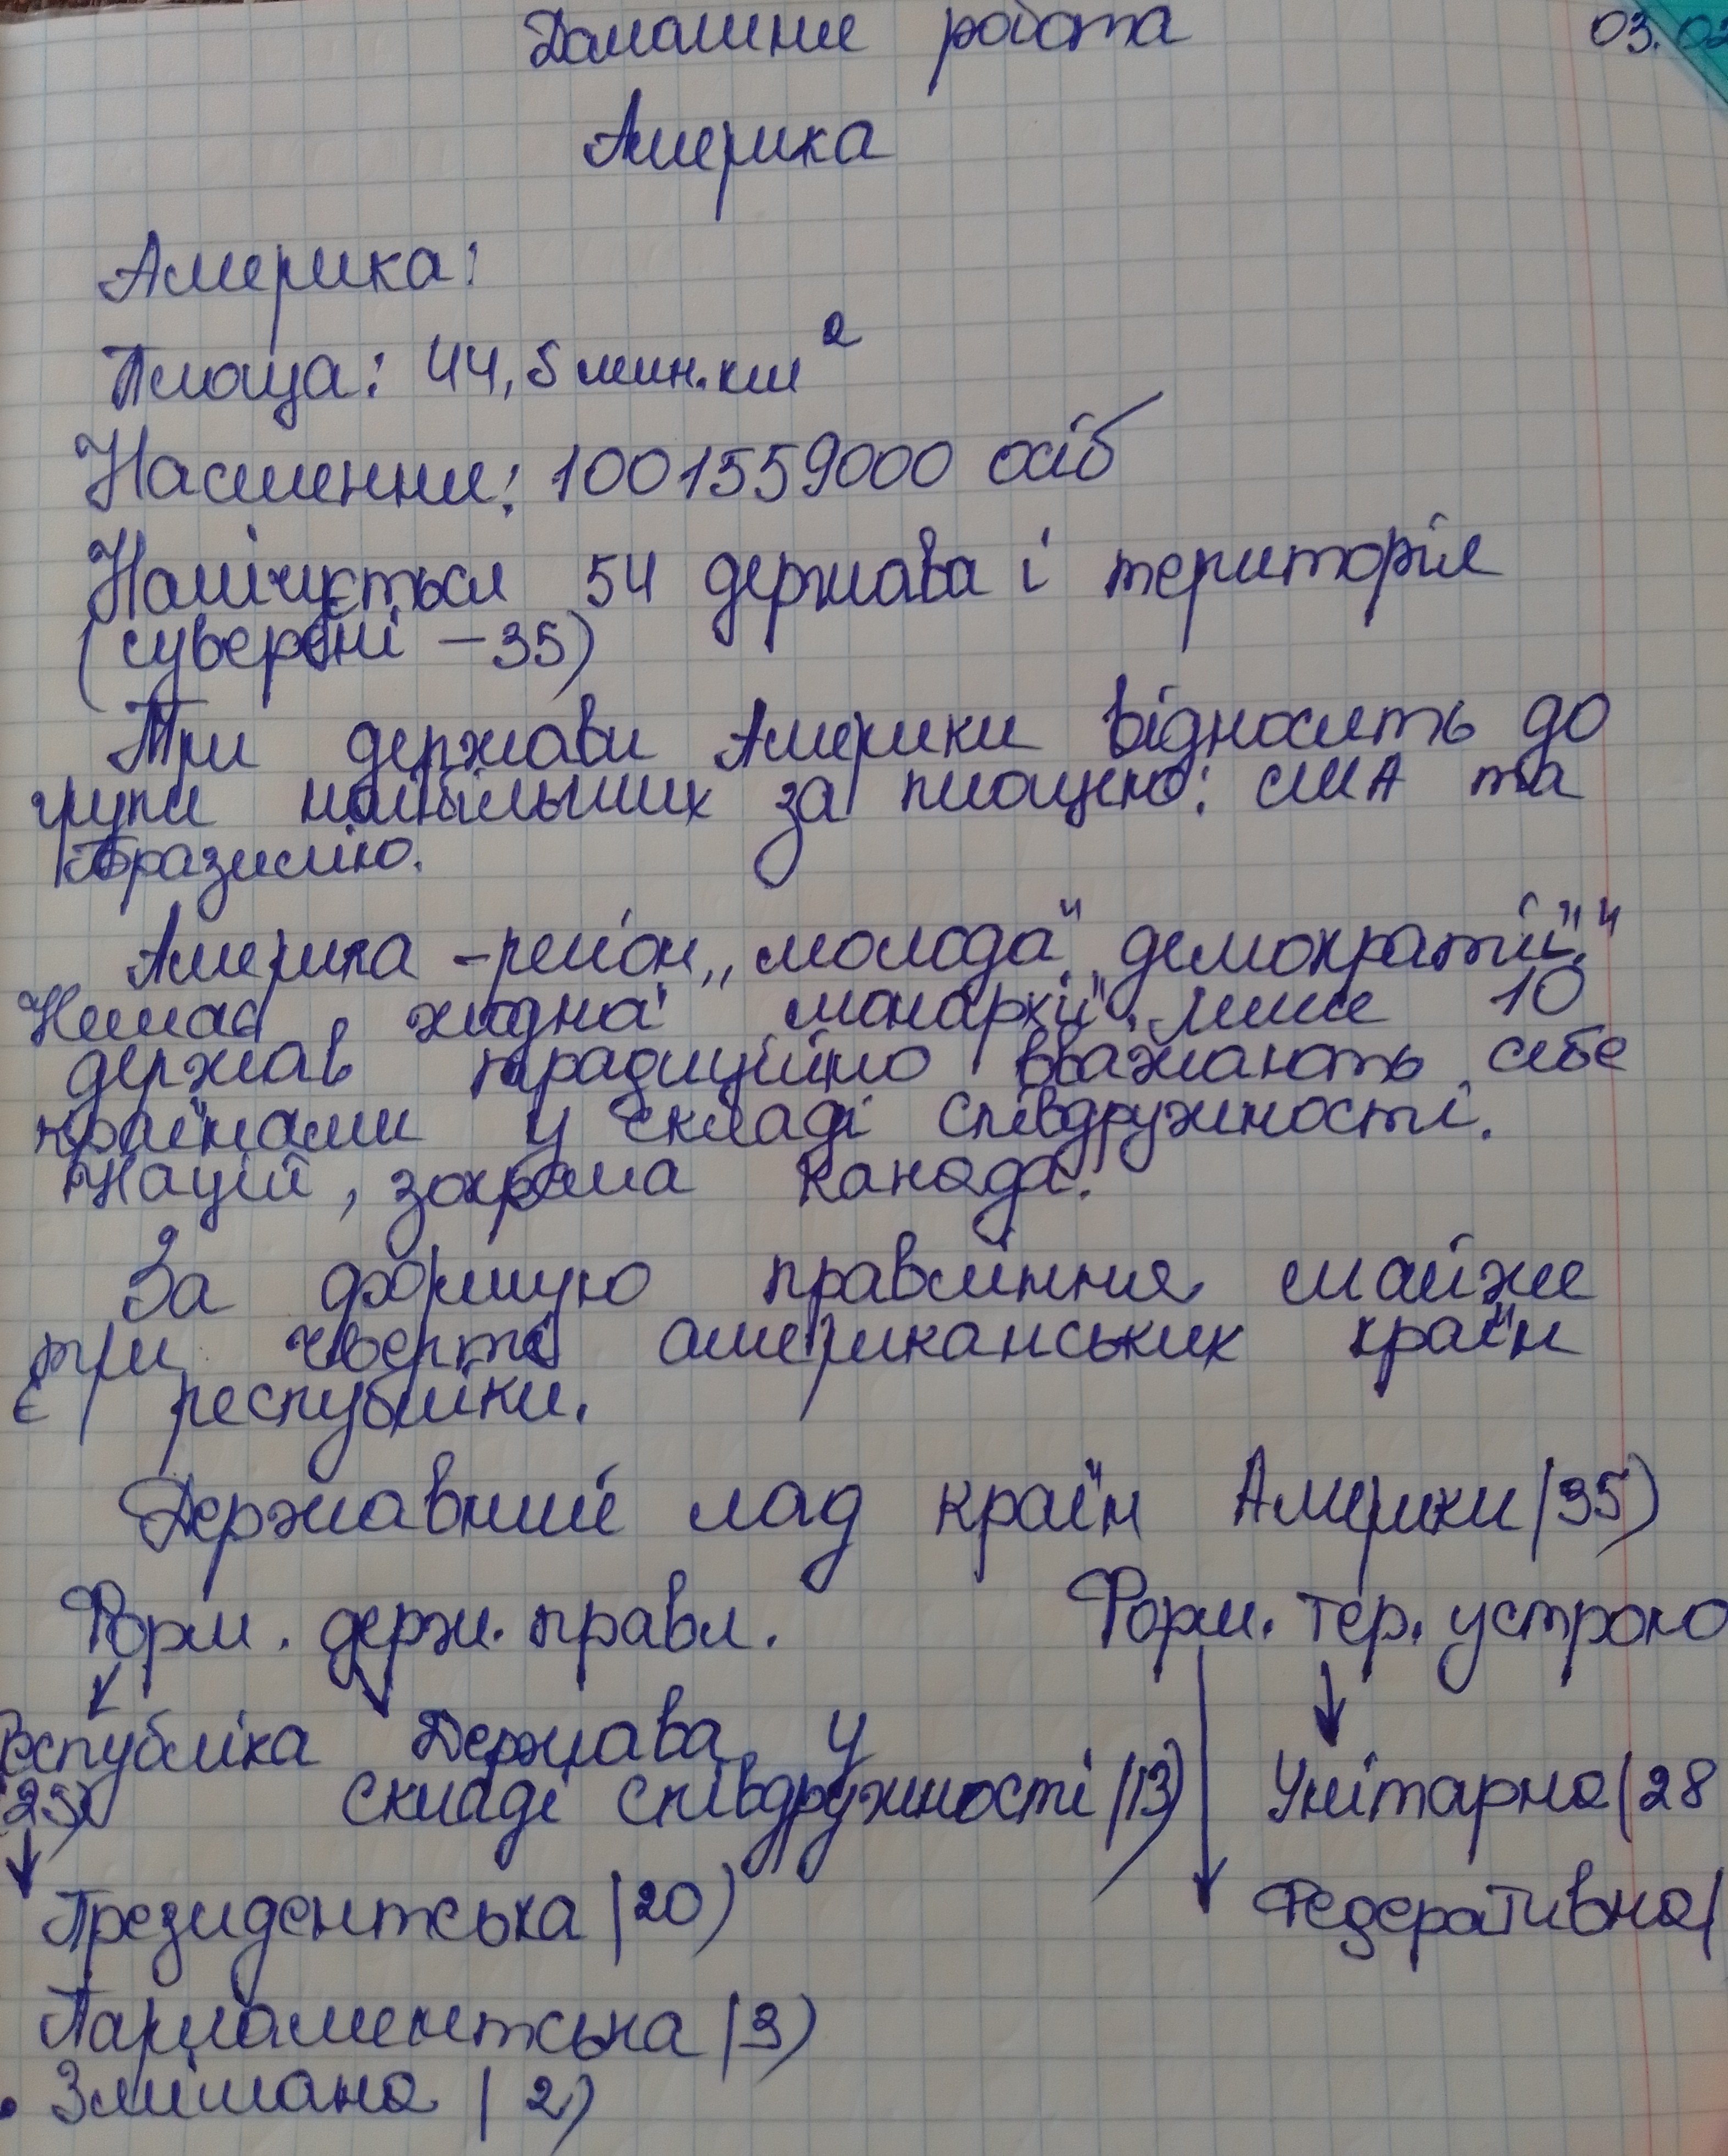 Домашня робота 03.02
Америка
Америка:
Площа: 44,5 млн.км²
Населення: 1001559000 осіб
Налічується 54 держава і територія
(суверені – 35)
Три держави Америки відносять до
групи найбільших за площею: США та
Бразилію.
Америка – регіон „молода" „демократії".
Немає жодна монархії, лише 10
держав традиційно вважають себе
країнами у складі співдружності.
Націй, зокрема Канада.
За формую правління майже
три чверті американських країн
є республіки.
Державний лад країн Америки (35)
Форм. держ. правл. Форм. тер. устрою
Республіка Держава у
(25) складі співдружності (13) Унітарна (28
Президентська (20) Федеративна (
Парламентська (3)
. Змішана (2)